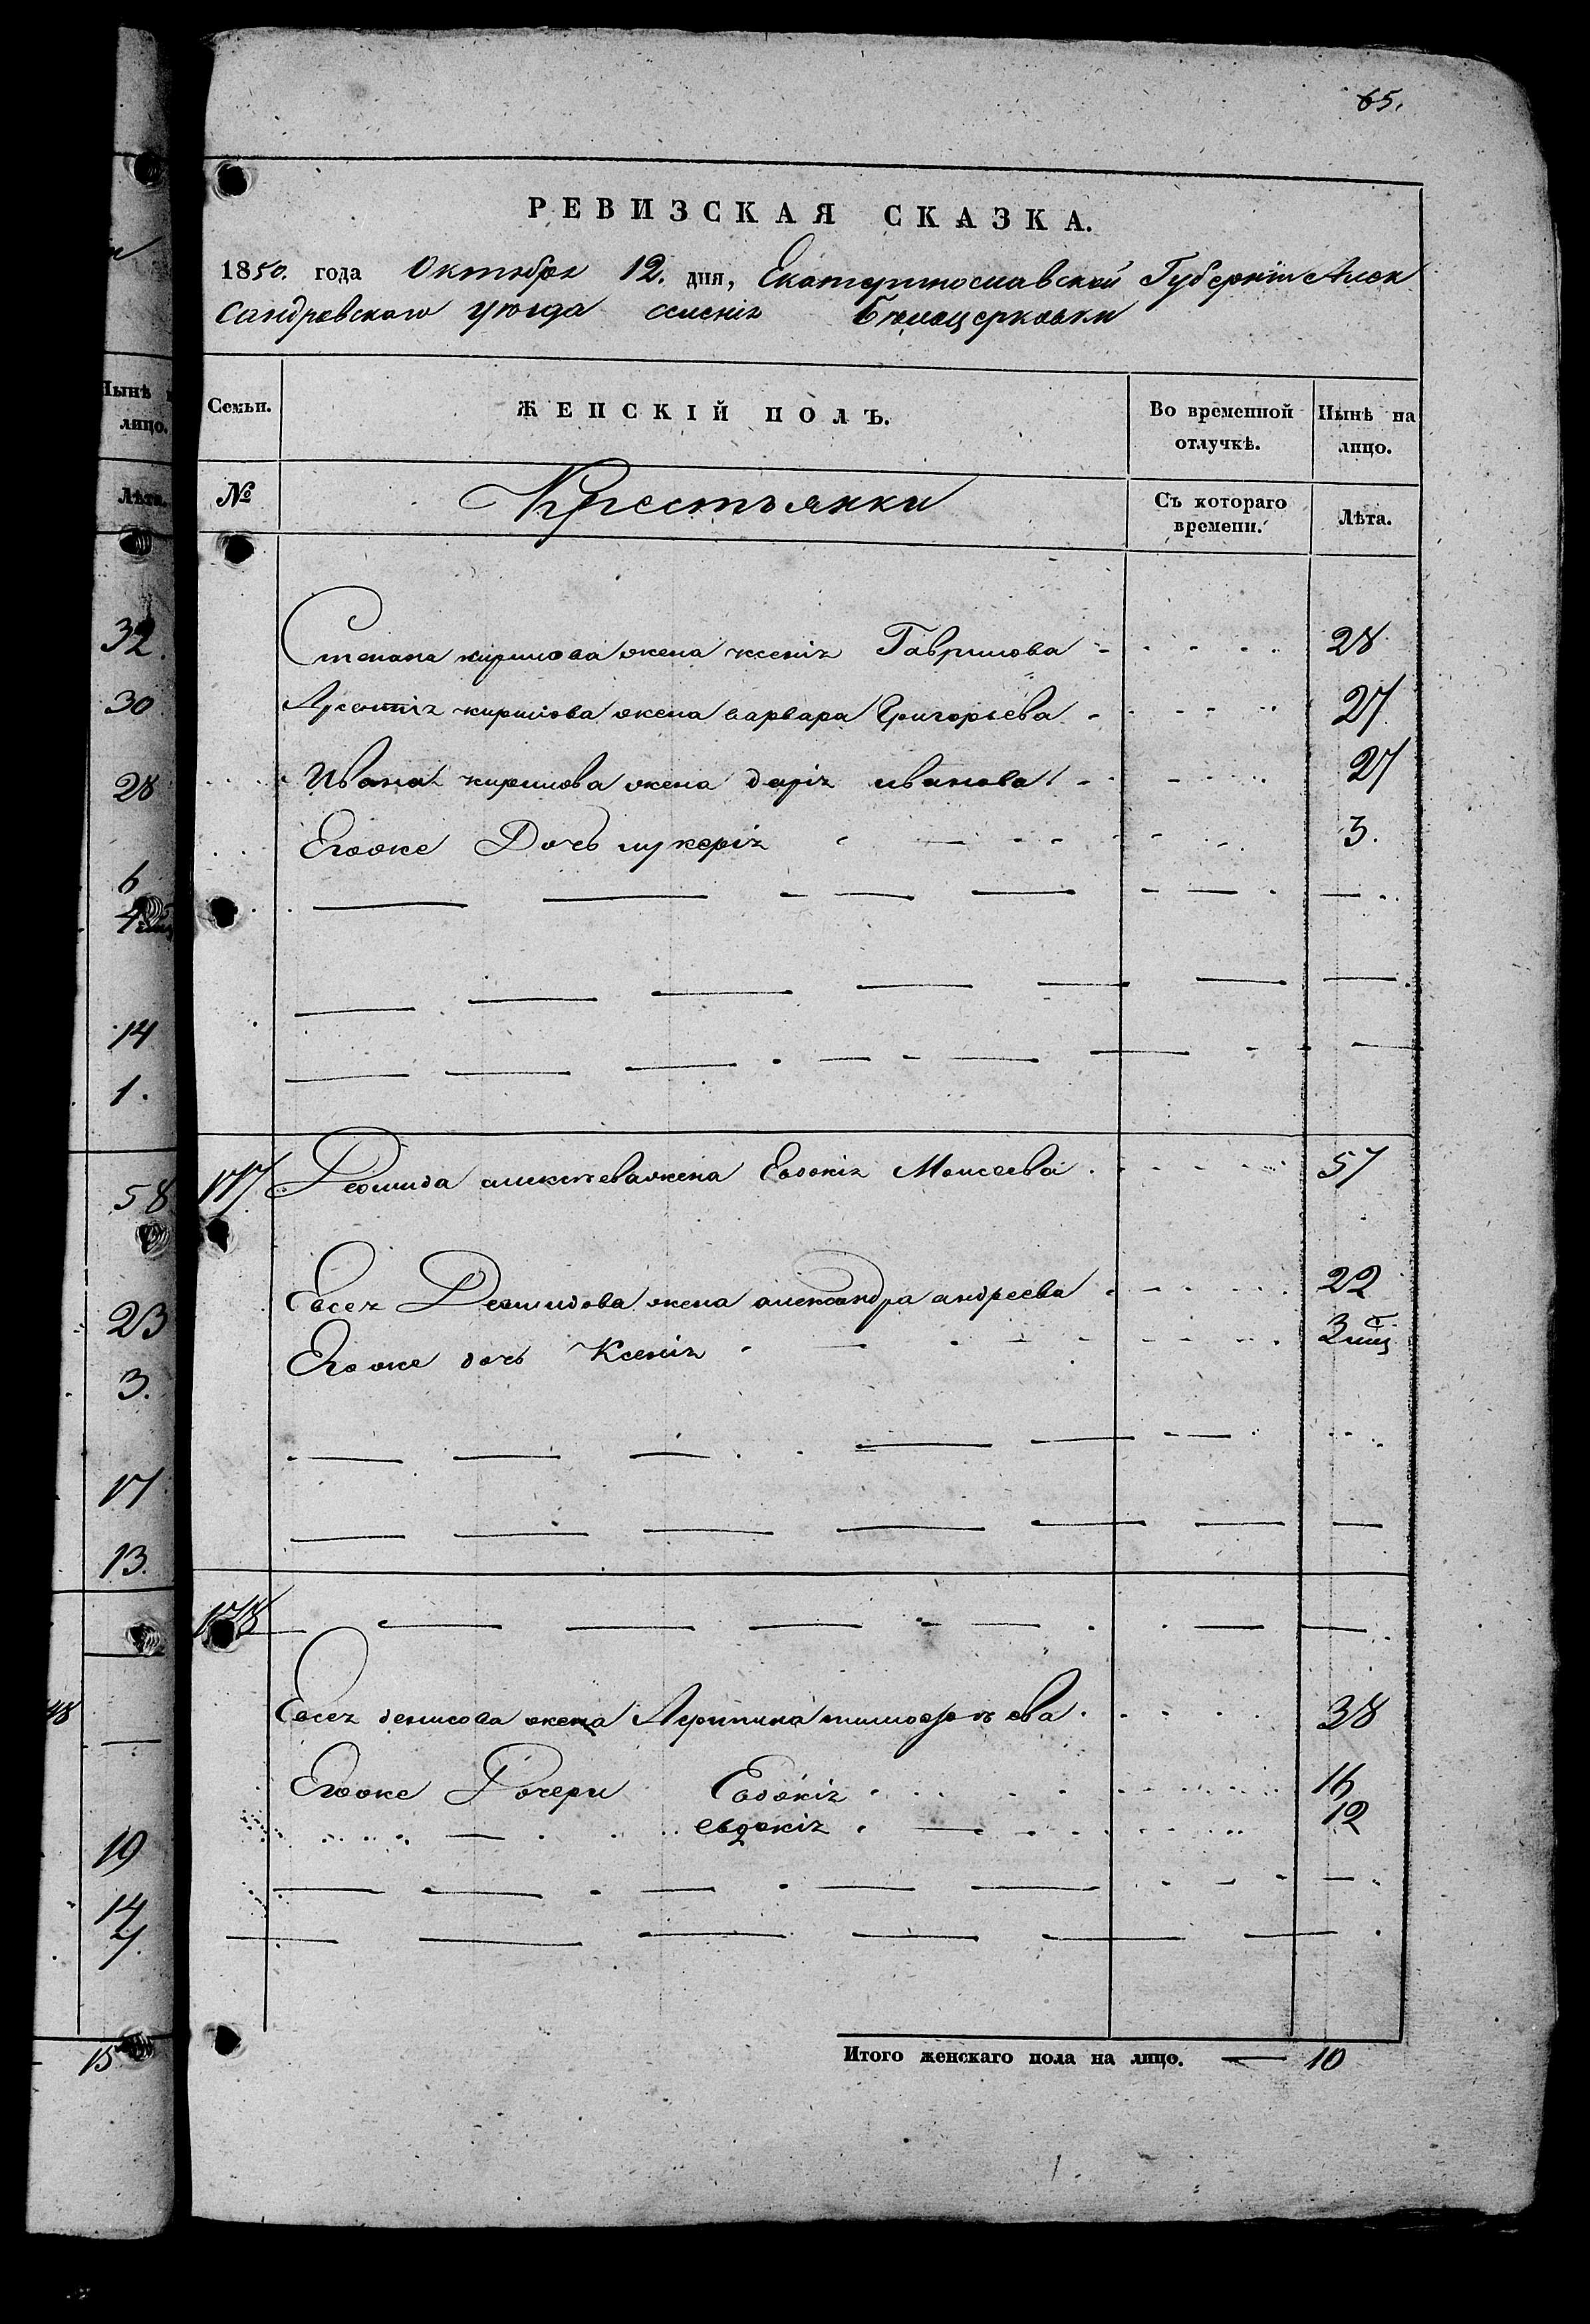 65.
РЕВИЗСКАЯ СКАЗКА.
1850. года Октября 12. дня, Екатеринославской Губерніи Алек
сандровскаго уѣзда селенія Бѣлоцерковки
Нынѣ
лицо.
Семьи.
ЖЕНСКІЙ ПОЛЪ.
Во временной отлучкѣ.
Нынѣ на лицо.
Лѣта.
№
Крестьянки
Съ котораго времени.
Лѣта.
32.
Степана кирилова жена ксенія Гаврилова 28
30
Арсентія кирилова жена варвара Григорьева 27
28
Ивана кирилова жена дарія иванова 27
Егоже Дочь лукерія 3.
6
4
14
1.
58
177 Деомида алексѣева жена Евдокія Моисеева 57
23
Евсея Деомидова жена александра андреева 22
Егоже дочь Ксенія 3 мц
3.
17
13.
178
48
Евсея денисова жена Агрипина тимофѣева 38
Егоже Дочери Евдокія 16
евдокія 12
19
14
7.
15
Итого женскаго пола на лицо. — 10